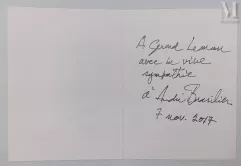 A Gérard Lemaur
avec la vive
sympathie
d'André Brasilier
7 nov. 2017